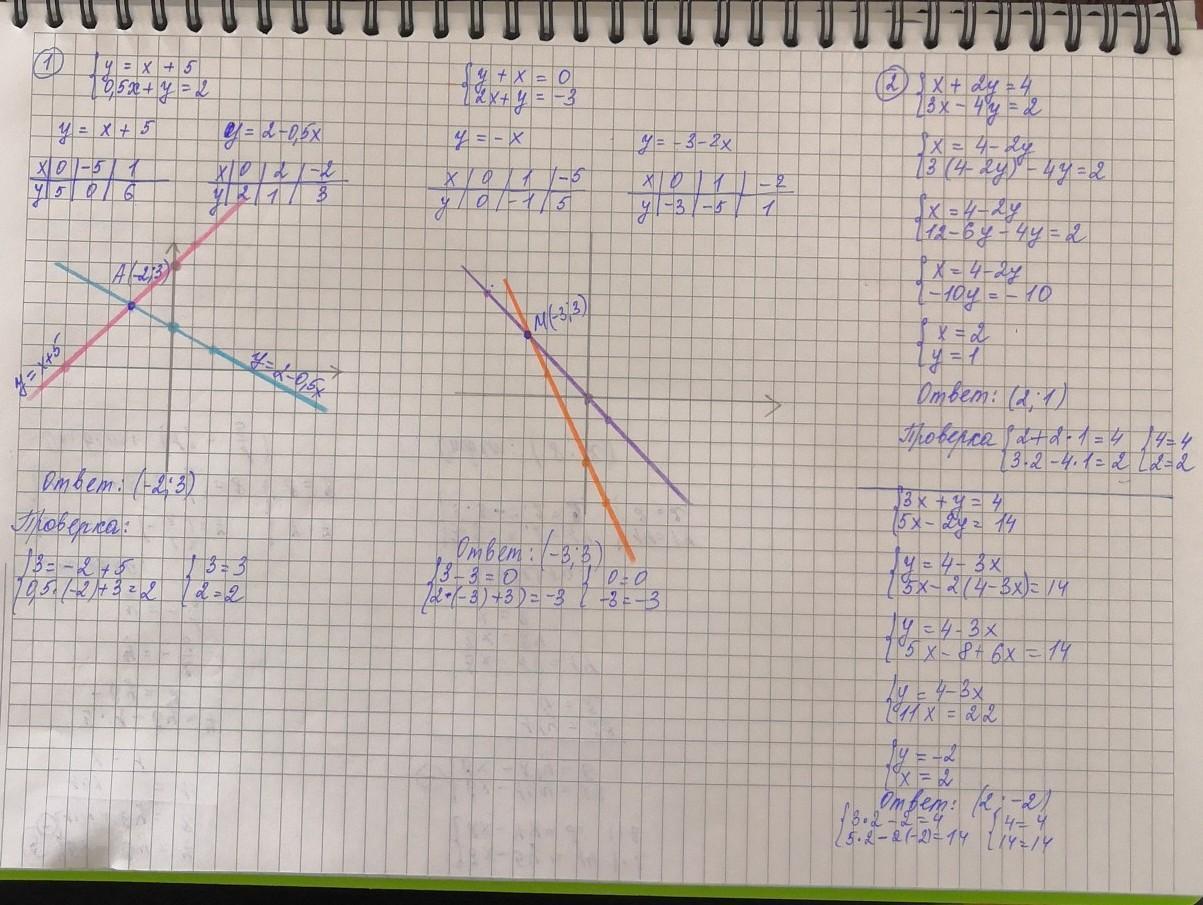 1
{y = x + 5
0,5x + y = 2
y = x + 5
y = 2-0,5x
x | 0 | -5 | 1
y | 5 | 0 | 6
x | 0 | 2 | -2
y | 2 | 1 | 3
A(-2;3)
y=x+5
y=2-0,5x
Ответ: (-2;3)
Проверка:
{3 = -2 + 5 {3=3
0,5·(-2)+3=2 2=2
{y + x = 0
2x+y = -3
y = -x
y = -3-2x
x | 0 | 1 | -5
y | 0 | -1 | 5
x | 0 | 1 | -2
y | -3 | -5 | 1
M(-3;3)
Ответ: (-3;3)
{3-3=0 {0=0
2·(-3)+3)=-3 -3=-3
2
{x + 2y = 4
3x - 4y = 2
{x = 4-2y
3(4-2y)-4y=2
{x=4-2y
12-6y-4y=2
{x=4-2y
-10y=-10
{x=2
y=1
Ответ: (2;1)
Проверка {2+2·1=4 {4=4
3·2-4·1=2 2=2
{3x+y=4
5x-2y=14
{y=4-3x
5x-2(4-3x)=14
{y=4-3x
5x-8+6x=14
{y=4-3x
11x=22
{y=-2
x=2
Ответ: (2;-2)
{3·2-2=4 {4=4
5·2-2(-2)=14 14=14